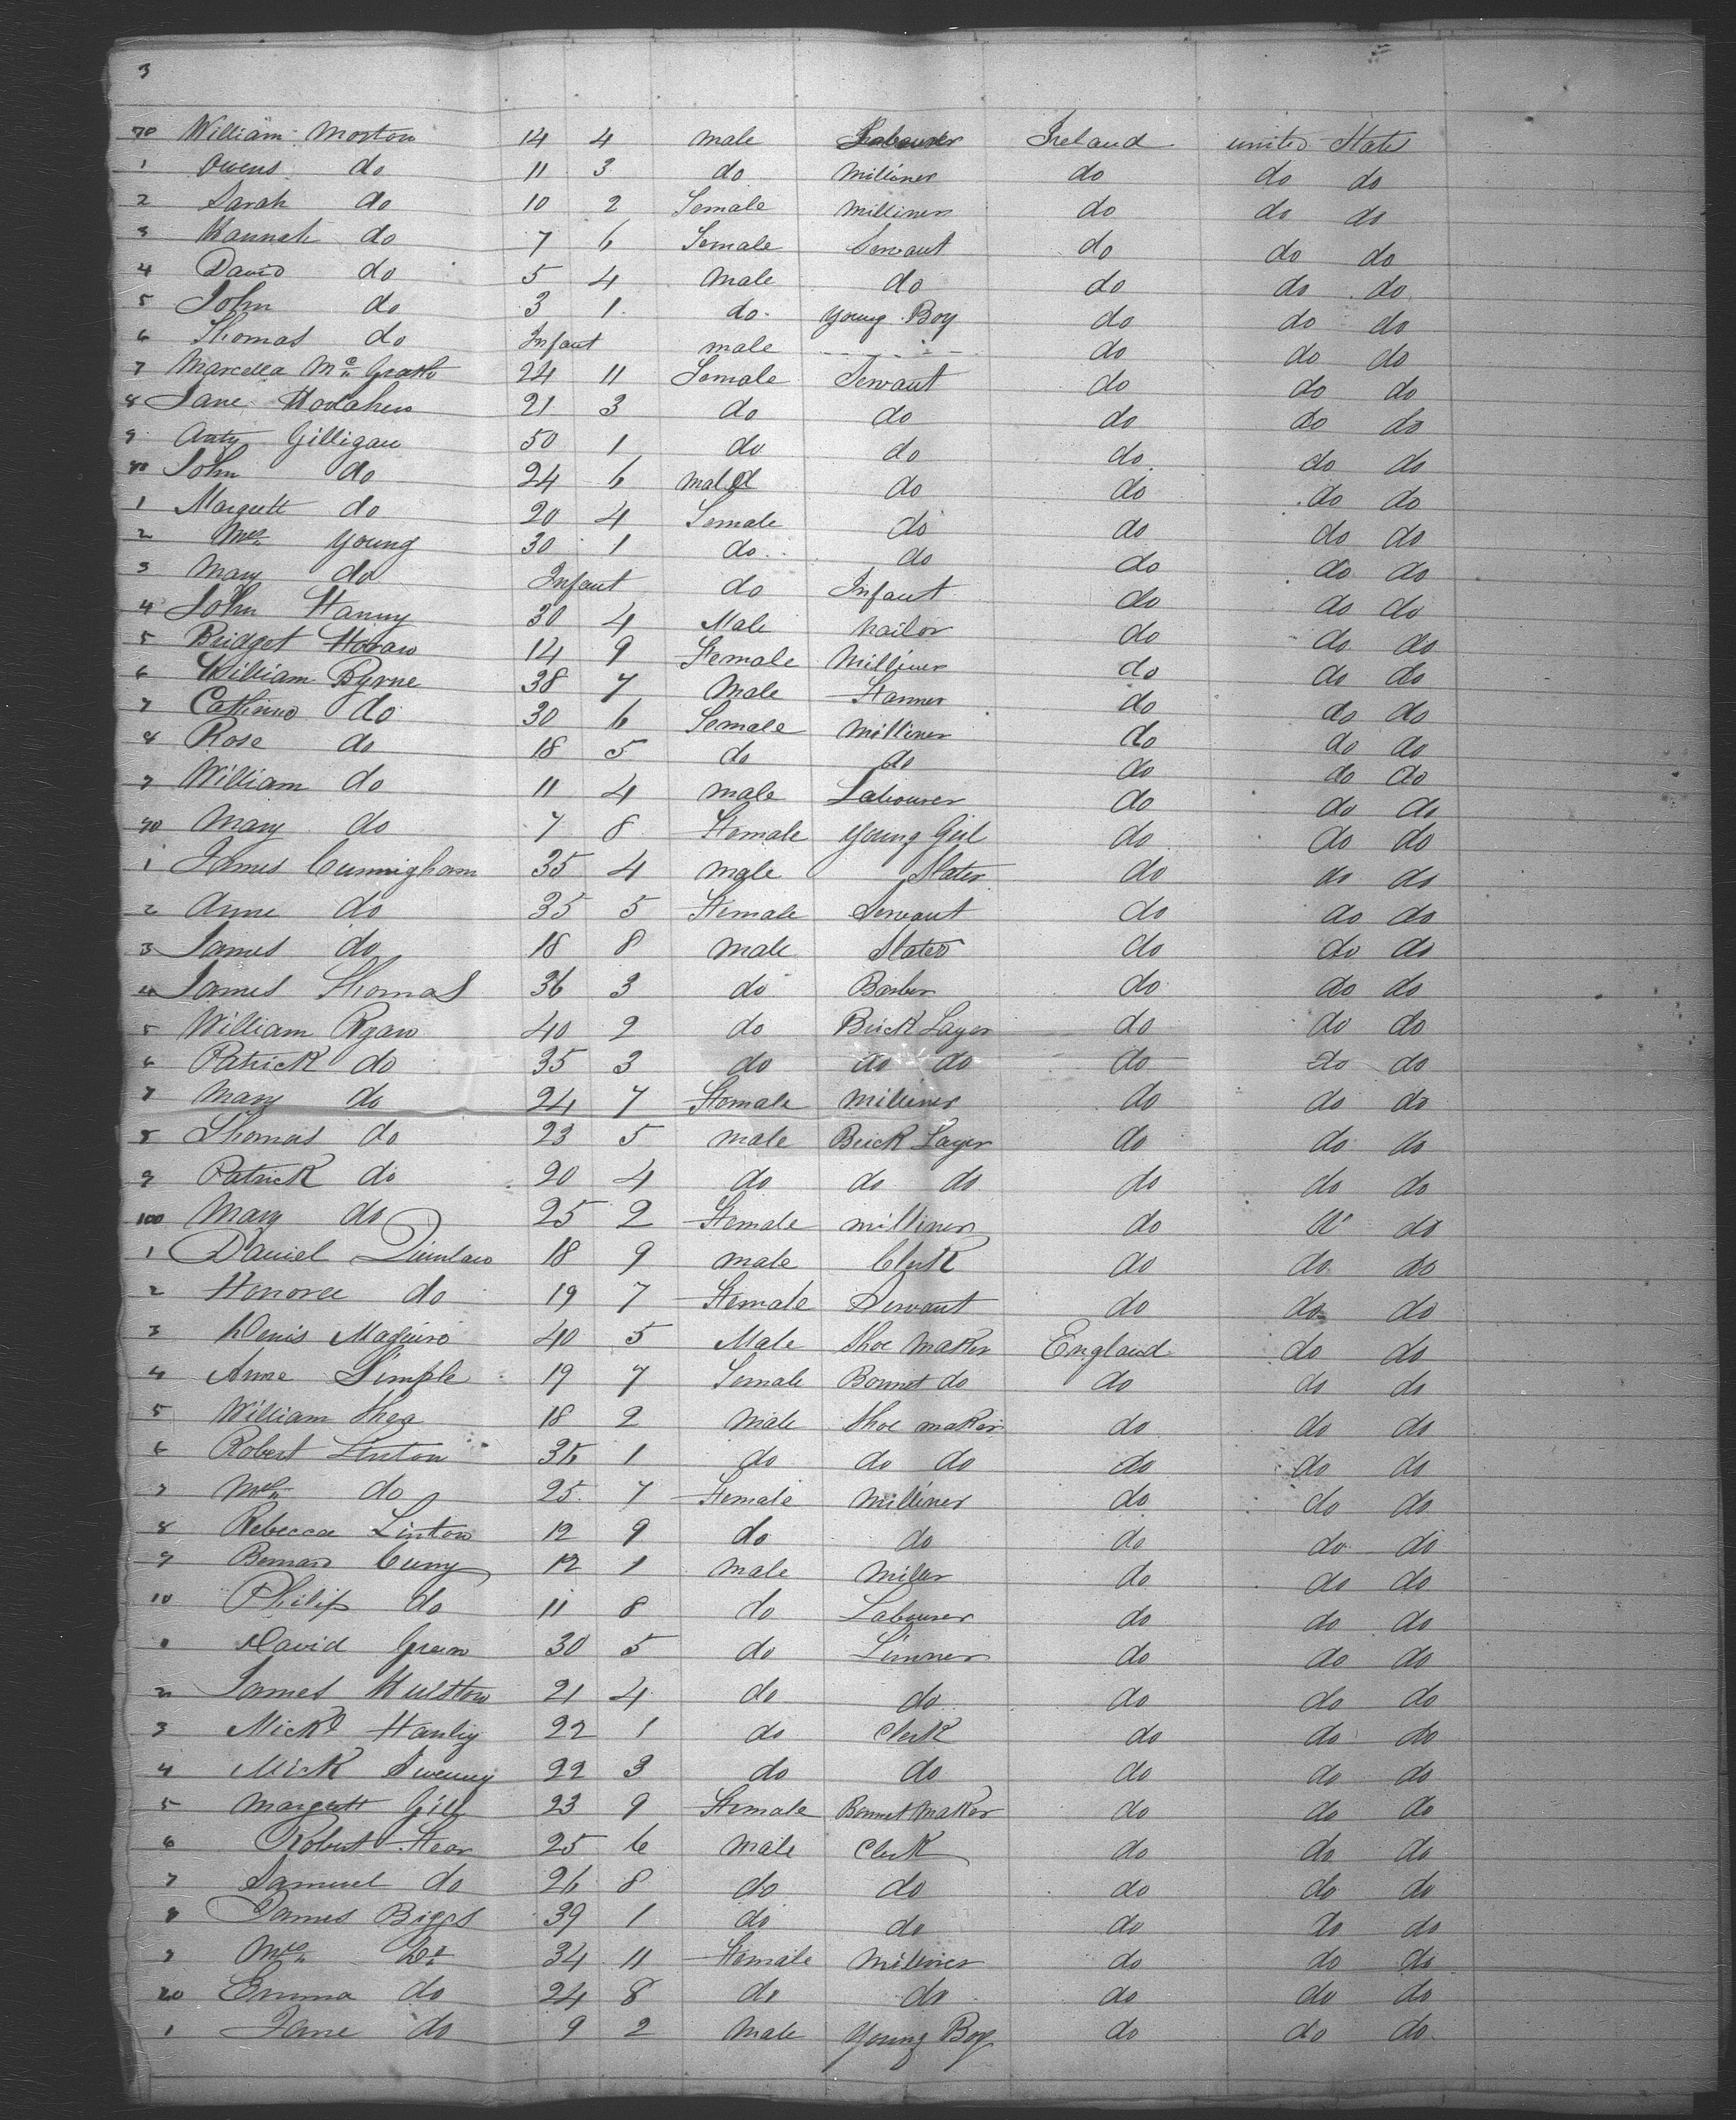 3
70 William Morton 14 4 male Labourer Ireland united States
1 Owens do 11 3 do Milliner do do do
2 Sarah do 10 2 Female Milliner do do do
3 Hannah do 7 6 Female Servant do do do
4 David do 5 4 Male do do do do
5 John do 3 1 do young Boy do do do
6 Thomas do Infant male do do do
7 Marcella Mc Grath 24 11 Female Servant do do do
8 Jane 21 3 do do do do do
9 Gilligan 50 1 do do do do do
80 John do 24 6 male do do do do
1 Margrett do 20 4 Female do do do do
2 Mrs Young 30 1 do do do do do
3 Mary do Infant do Infant do do do
4 John Hanny 30 4 Male Nailor do do do
5 Bridget Horan 14 9 Female Milliner do do do
6 William Byrne 38 7 Male Farmer do do do
7 do 30 6 Female Milliner do do do
8 Rose do 18 5 do do do do do
9 William do 11 4 male Labourer do do do
90 Mary do 7 8 Female young Girl do do do
1 James Cunnigham 35 4 male Slater do do do
2 Anne do 35 5 Female Servant do do do
3 James do 18 8 male Slater do do do
4 James Thomas 36 3 do Barber do do do
5 William Ryan 40 2 do Brick Layer do do do
6 Patrick do 35 3 do do do do do do
7 Mary do 24 7 Female Milliner do do do
8 Thomas do 23 5 male Brick Layer do do do
9 Patrick do 20 4 do do do do do do
100 Mary do 25 2 Female milliner do do do
1 Daniel Quinlan 18 9 male Clerk do do do
2 Honora do 19 7 Female Servant do do do
3 Denis 40 5 Male Shoe Maker England do do
4 Anne Simple 19 7 Female Bonnet do do do do
5 William Shea 18 2 male Shoe maker do do do
6 Robert Linton 35 1 do do do do do do
7 Mrs do 25 7 Female Milliner do do do
8 Rebecca Linton 12 9 do do do do do
9 Bernard 12 1 male Miller do do do
10 Philip do 11 8 do Labourer do do do
1 David Green 30 5 do Limner do do do
2 James 21 4 do do do do do
3 Mickl Hanley 22 1 do Clerk do do do
4 Mick Sweeny 22 3 do do do do do
5 Margrett Gill 23 9 Female Bonnet Maker do do do
6 Robert 25 6 male Clerk do do do
7 Samuel do 26 8 do do do do do
8 James Biggs 39 1 do do do do do
9 Mrs Do 34 11 Female Milliner do do do
20 Emma do 24 8 do do do do do
1 Jane do 9 2 Male Young Boy do do do